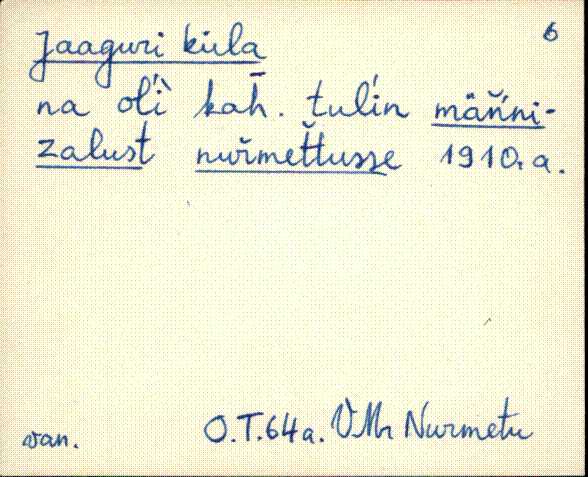 6
Jaaguri küla
na olì kah̄. tulín mäńni-
zalust nuŕmeťtusse 1910. a.
van. O.T.64a. VMr Nurmetu